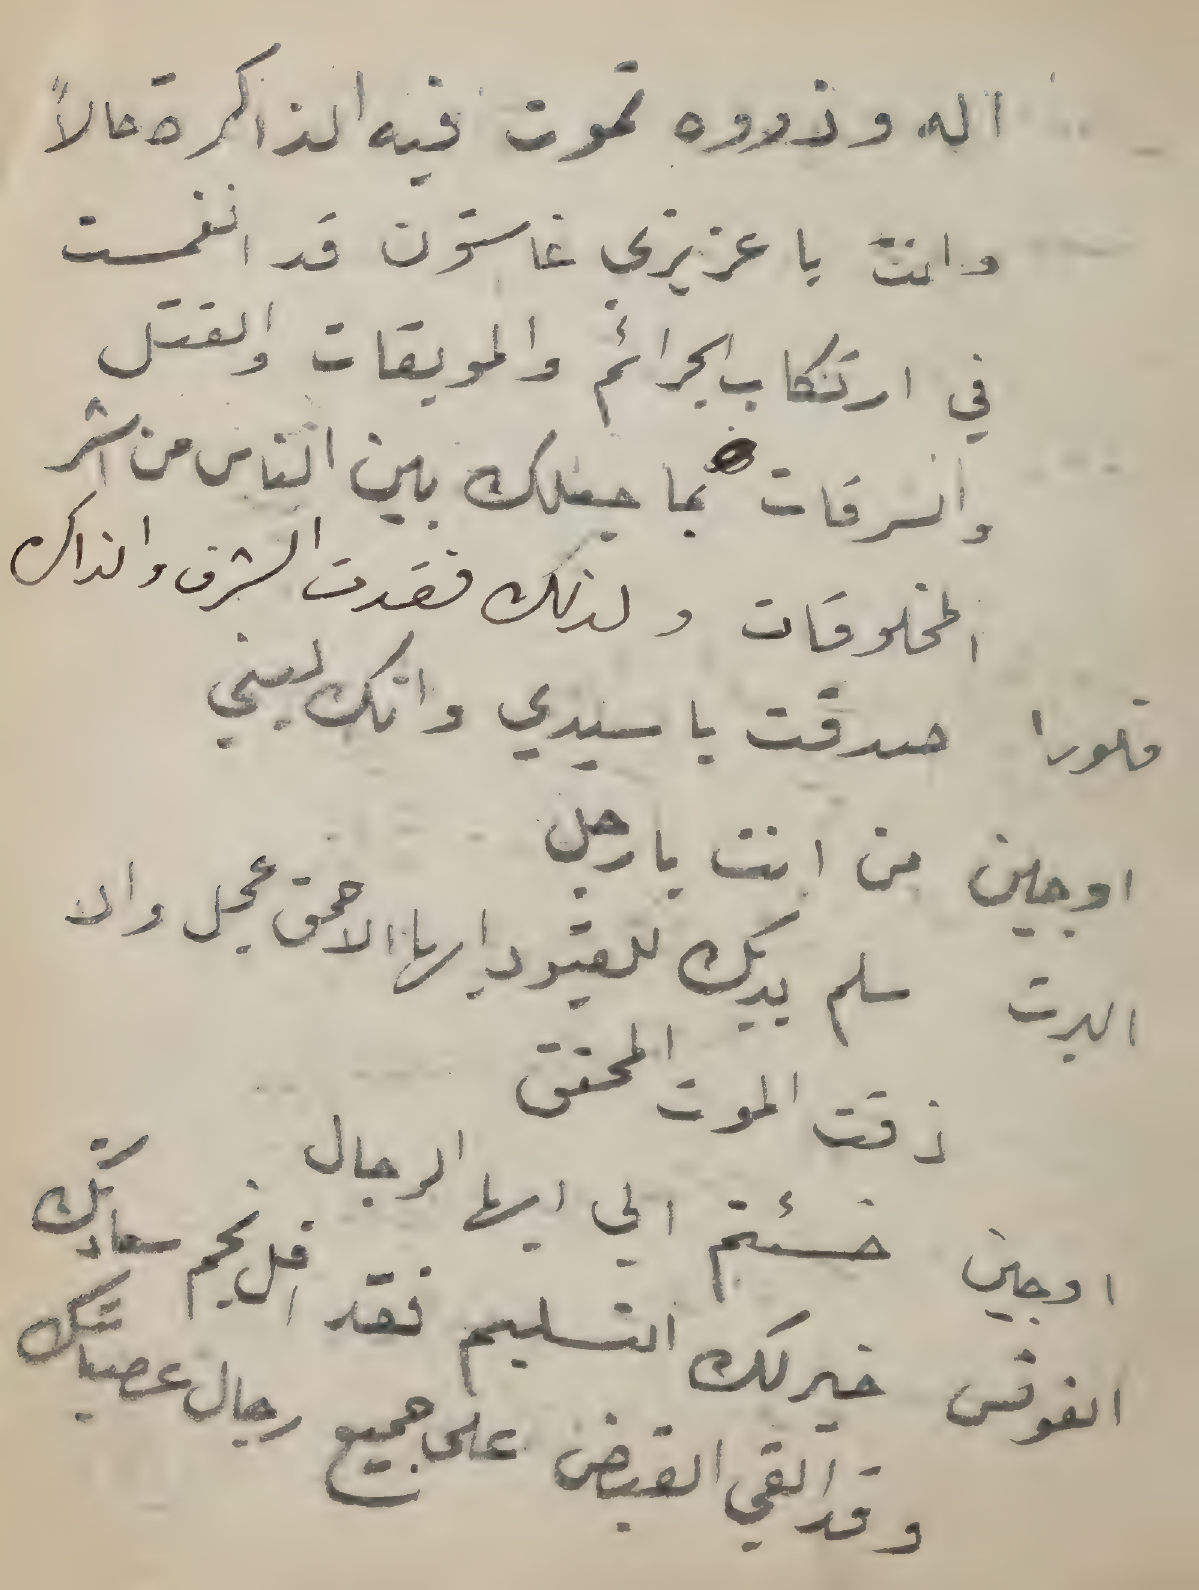 اله وذووه تموت فيه الذاكرة حالاً
وانت يا عزيزي غاستون قد انغمست
في ارتكاب الجرائم والموبقات والقتل
والسرقات مما جعلك بين الناس من اشر
المخلوقات ولذلك فقدت الشرف والذاك
فلورا صدقت يا سيدي وانك ليبني
اوجين من انت يا رجل
البرت سلم يديك للقيود ايها الاحمق عجل والا
ذقت الموت المحقق
اوجين خسئتم الي ايها الرجال
الفونس خير لك التسليم فقد افل نجم سعادتك
وقد القي القبض على جميع رجال عصابتك